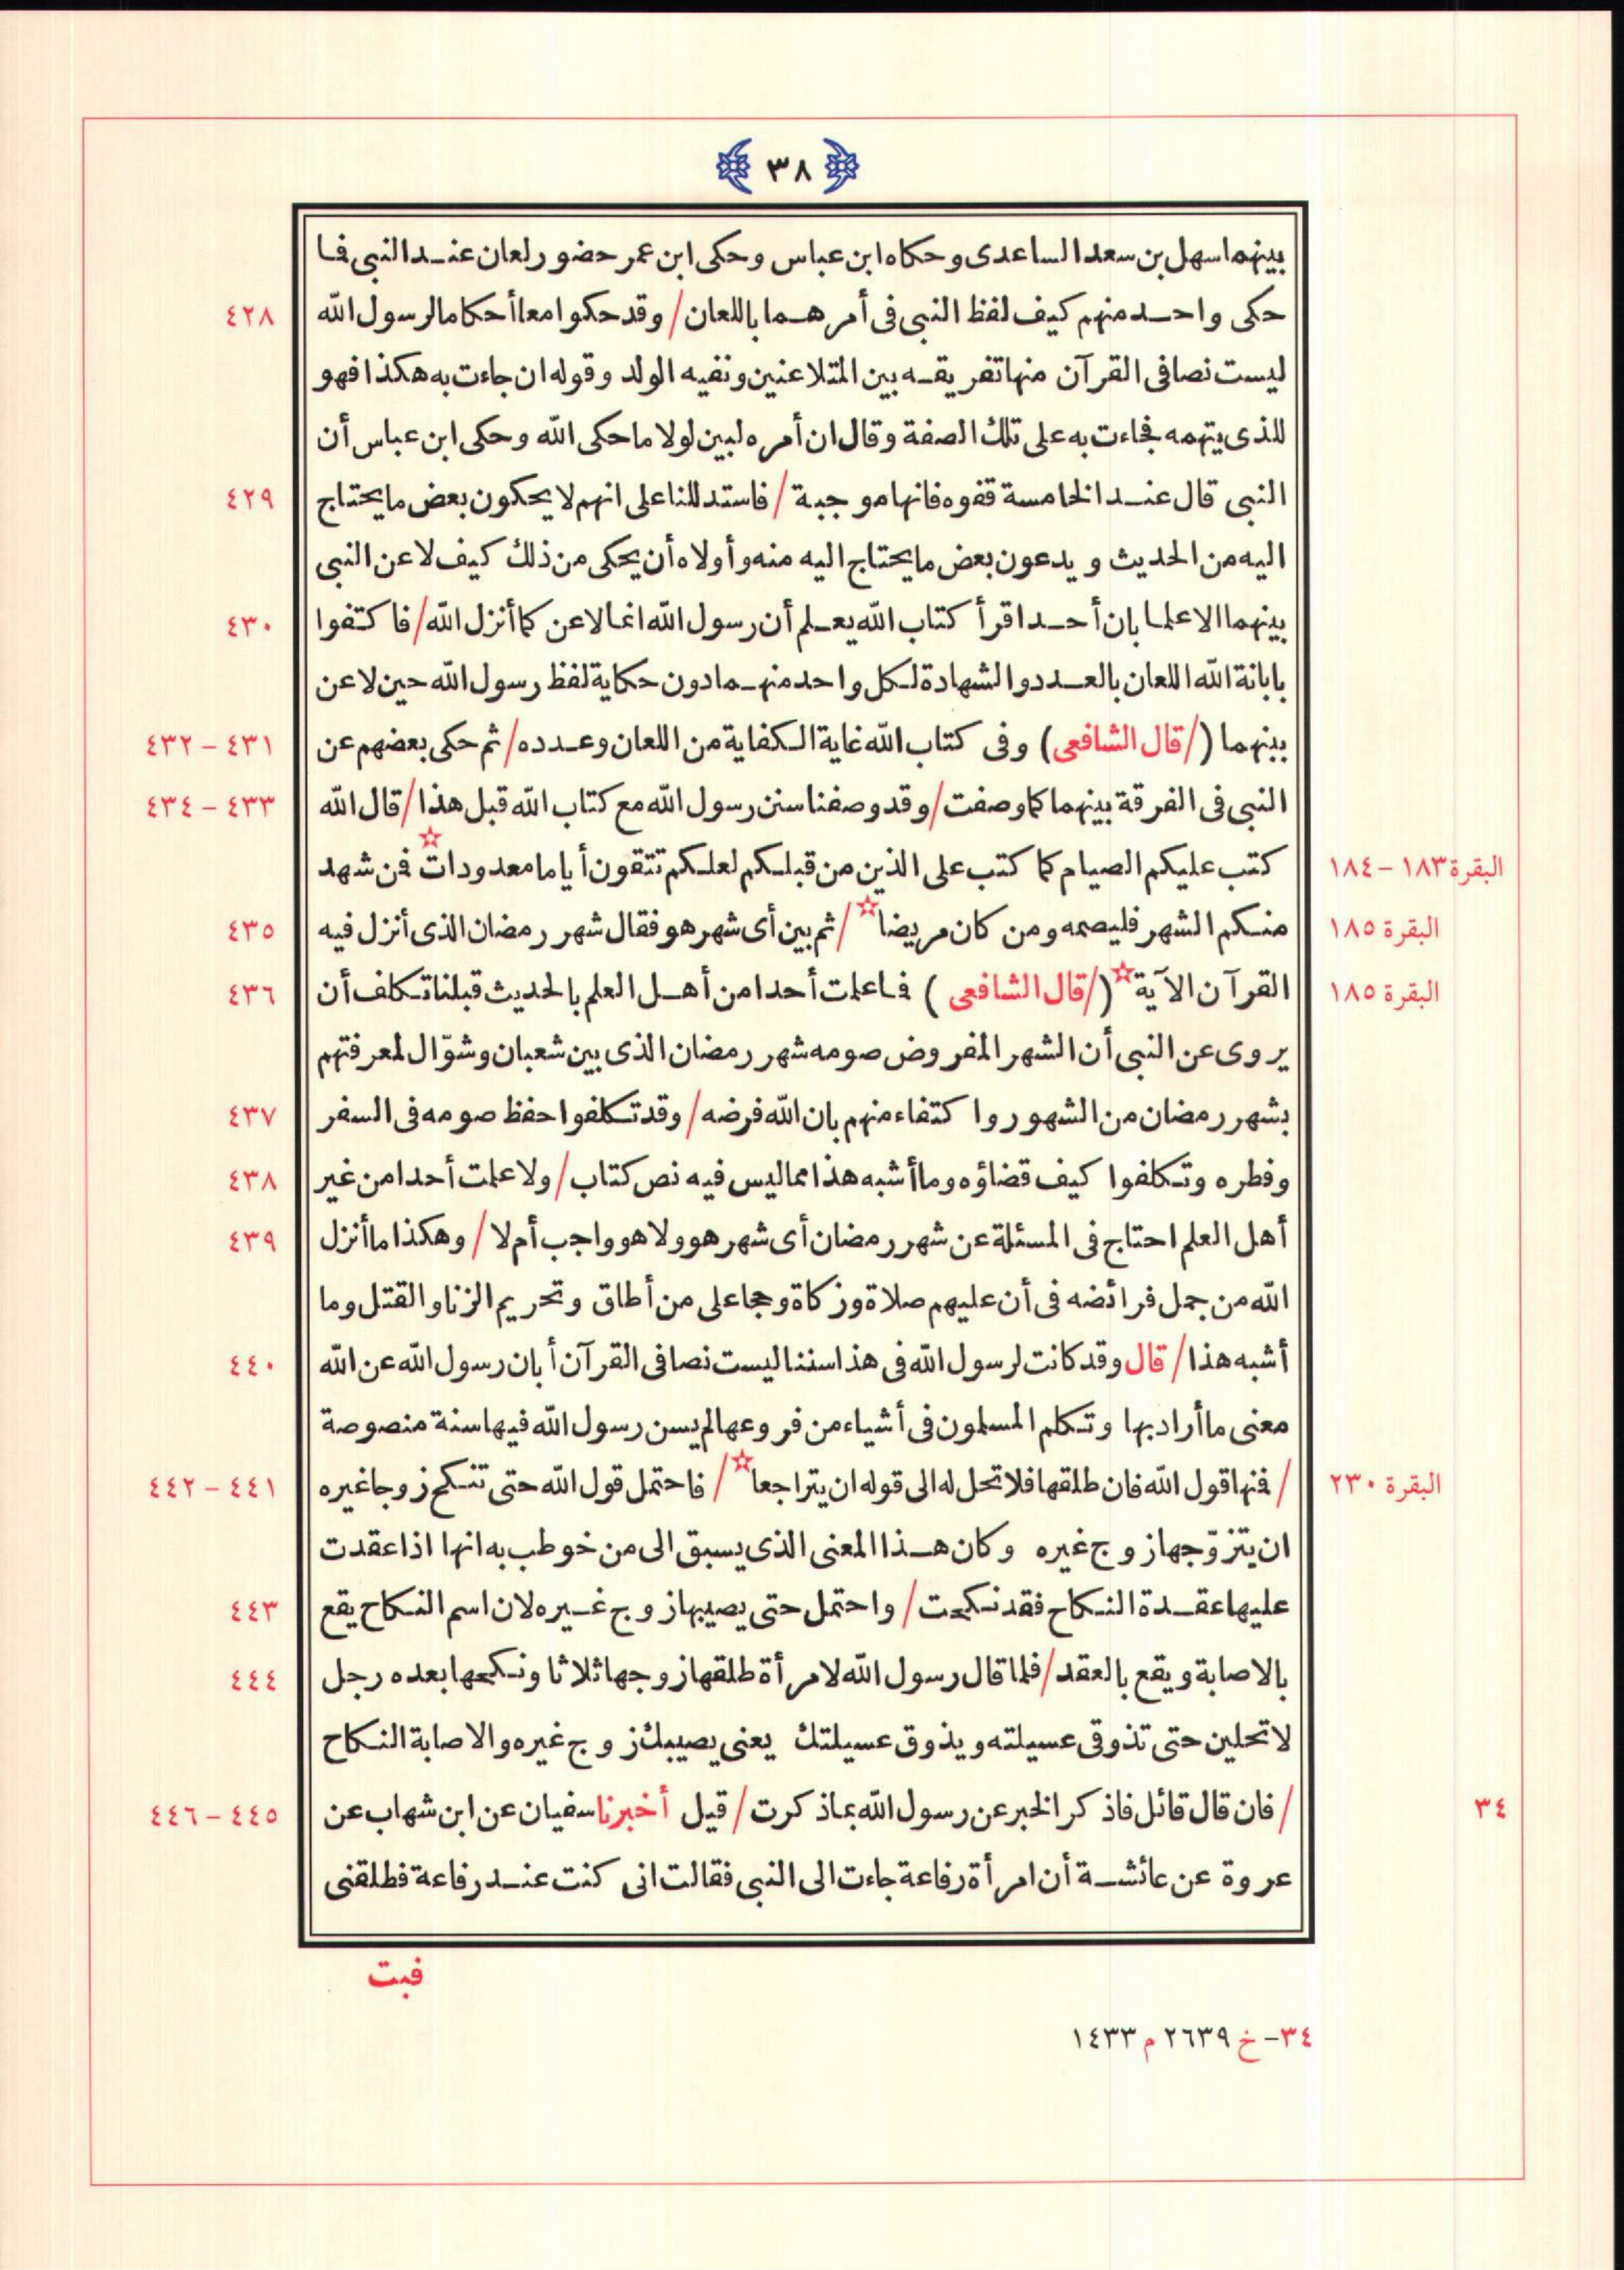 ﴿ ٣٨ ﴾
بينهما سهل بن سعد الساعدى وحكاه ابن عباس وحكى ابن عمر حضور لعان عند النبى فما
حكى واحد منهم كيف لفظ النبى فى أمرهما باللعان / وقد حكوا معا أحكاما لرسول الله ٤٢٨
ليست نصا فى القرآن منها تفريقه بين المتلاعنين ونفيه الولد وقوله ان جاءت به هكذا فهو
للذى يتهمه فجاءت به على تلك الصفة وقال ان أمره لبين لولا ما حكى الله وحكى ابن عباس أن
النبى قال عند الخامسة قفوه فانها موجبة / فاستدللنا على انهم لا يحكون بعض ما يحتاج ٤٢٩
اليه من الحديث ويدعون بعض ما يحتاج اليه منه وأولاه أن يحكى من ذلك كيف لاعن النبى
بينهما الا علما بان أحدا قرأ كتاب الله يعلم أن رسول الله انما لاعن كما أنزل الله / فاكتفوا ٤٣٠
بابانة الله اللعان بالعدد والشهادة لكل واحد منهما دون حكاية لفظ رسول الله حين لاعن
بينهما (/ قال الشافعى) وفى كتاب الله غاية الكفاية من اللعان وعدده / ثم حكى بعضهم عن ٤٣١ – ٤٣٢
النبى فى الفرقة بينهما كما وصفت / وقد وصفنا سنن رسول الله مع كتاب الله قبل هذا / قال الله ٤٣٣ – ٤٣٤
البقرة ١٨٣ – ١٨٤ كتب عليكم الصيام كما كتب على الذين من قبلكم لعلكم تتقون أياما معدودات☆ فمن شهد
البقرة ١٨٥ منكم الشهر فليصمه ومن كان مريضا☆ / ثم بين أى شهر هو فقال شهر رمضان الذى أنزل فيه ٤٣٥
البقرة ١٨٥ القرآن الآية☆ (/ قال الشافعى) فما علمت أحدا من أهل العلم بالحديث قبلنا تكلف أن ٤٣٦
يروى عن النبى أن الشهر المفروض صومه شهر رمضان الذى بين شعبان وشوّال لمعرفتهم
بشهر رمضان من الشهور واكتفاء منهم بان الله فرضه / وقد تكلفوا حفظ صومه فى السفر ٤٣٧
وفطره وتكلفوا كيف قضاؤه وما أشبه هذا مما ليس فيه نص كتاب / ولا علمت أحدا من غير ٤٣٨
أهل العلم احتاج فى المسئلة عن شهر رمضان أى شهر هو ولا هو واجب أم لا / وهكذا ما أنزل ٤٣٩
الله من جمل فرائضه فى أن عليهم صلاة وزكاة وحجا على من أطاق وتحريم الزنا والقتل وما
أشبه هذا / قال وقد كانت لرسول الله فى هذا سننا ليست نصا فى القرآن أبان رسول الله عن الله ٤٤٠
معنى ما أراد بها وتكلم المسلمون فى أشياء من فروعها لم يسن رسول الله فيها سنة منصوصة
البقرة ٢٣٠ / فمنها قول الله فان طلقها فلا تحل له الى قوله ان يتراجعا☆ / فاحتمل قول الله حتى تنكح زوجا غيره ٤٤١ – ٤٤٢
ان يتزوّجها زوج غيره وكان هذا المعنى الذى يسبق الى من خوطب به انها اذا عقدت
عليها عقدة النكاح فقد نكحت / واحتمل حتى يصيبها زوج غيره لان اسم النكاح يقع ٤٤٣
بالاصابة ويقع بالعقد / فلما قال رسول الله لامرأة طلقها زوجها ثلاثا ونكحها بعده رجل ٤٤٤
لا تحلين حتى تذوقى عسيلته ويذوق عسيلتك يعنى يصيبك زوج غيره والاصابة النكاح
٣٤ / فان قال قائل فاذكر الخبر عن رسول الله بما ذكرت / قيل أخبرنا سفيان عن ابن شهاب عن ٤٤٥ – ٤٤٦
عروة عن عائشة أن امرأة رفاعة جاءت الى النبى فقالت انى كنت عند رفاعة فطلقنى
فبت
٣٤- خ ٢٦٣٩ م ١٤٣٣